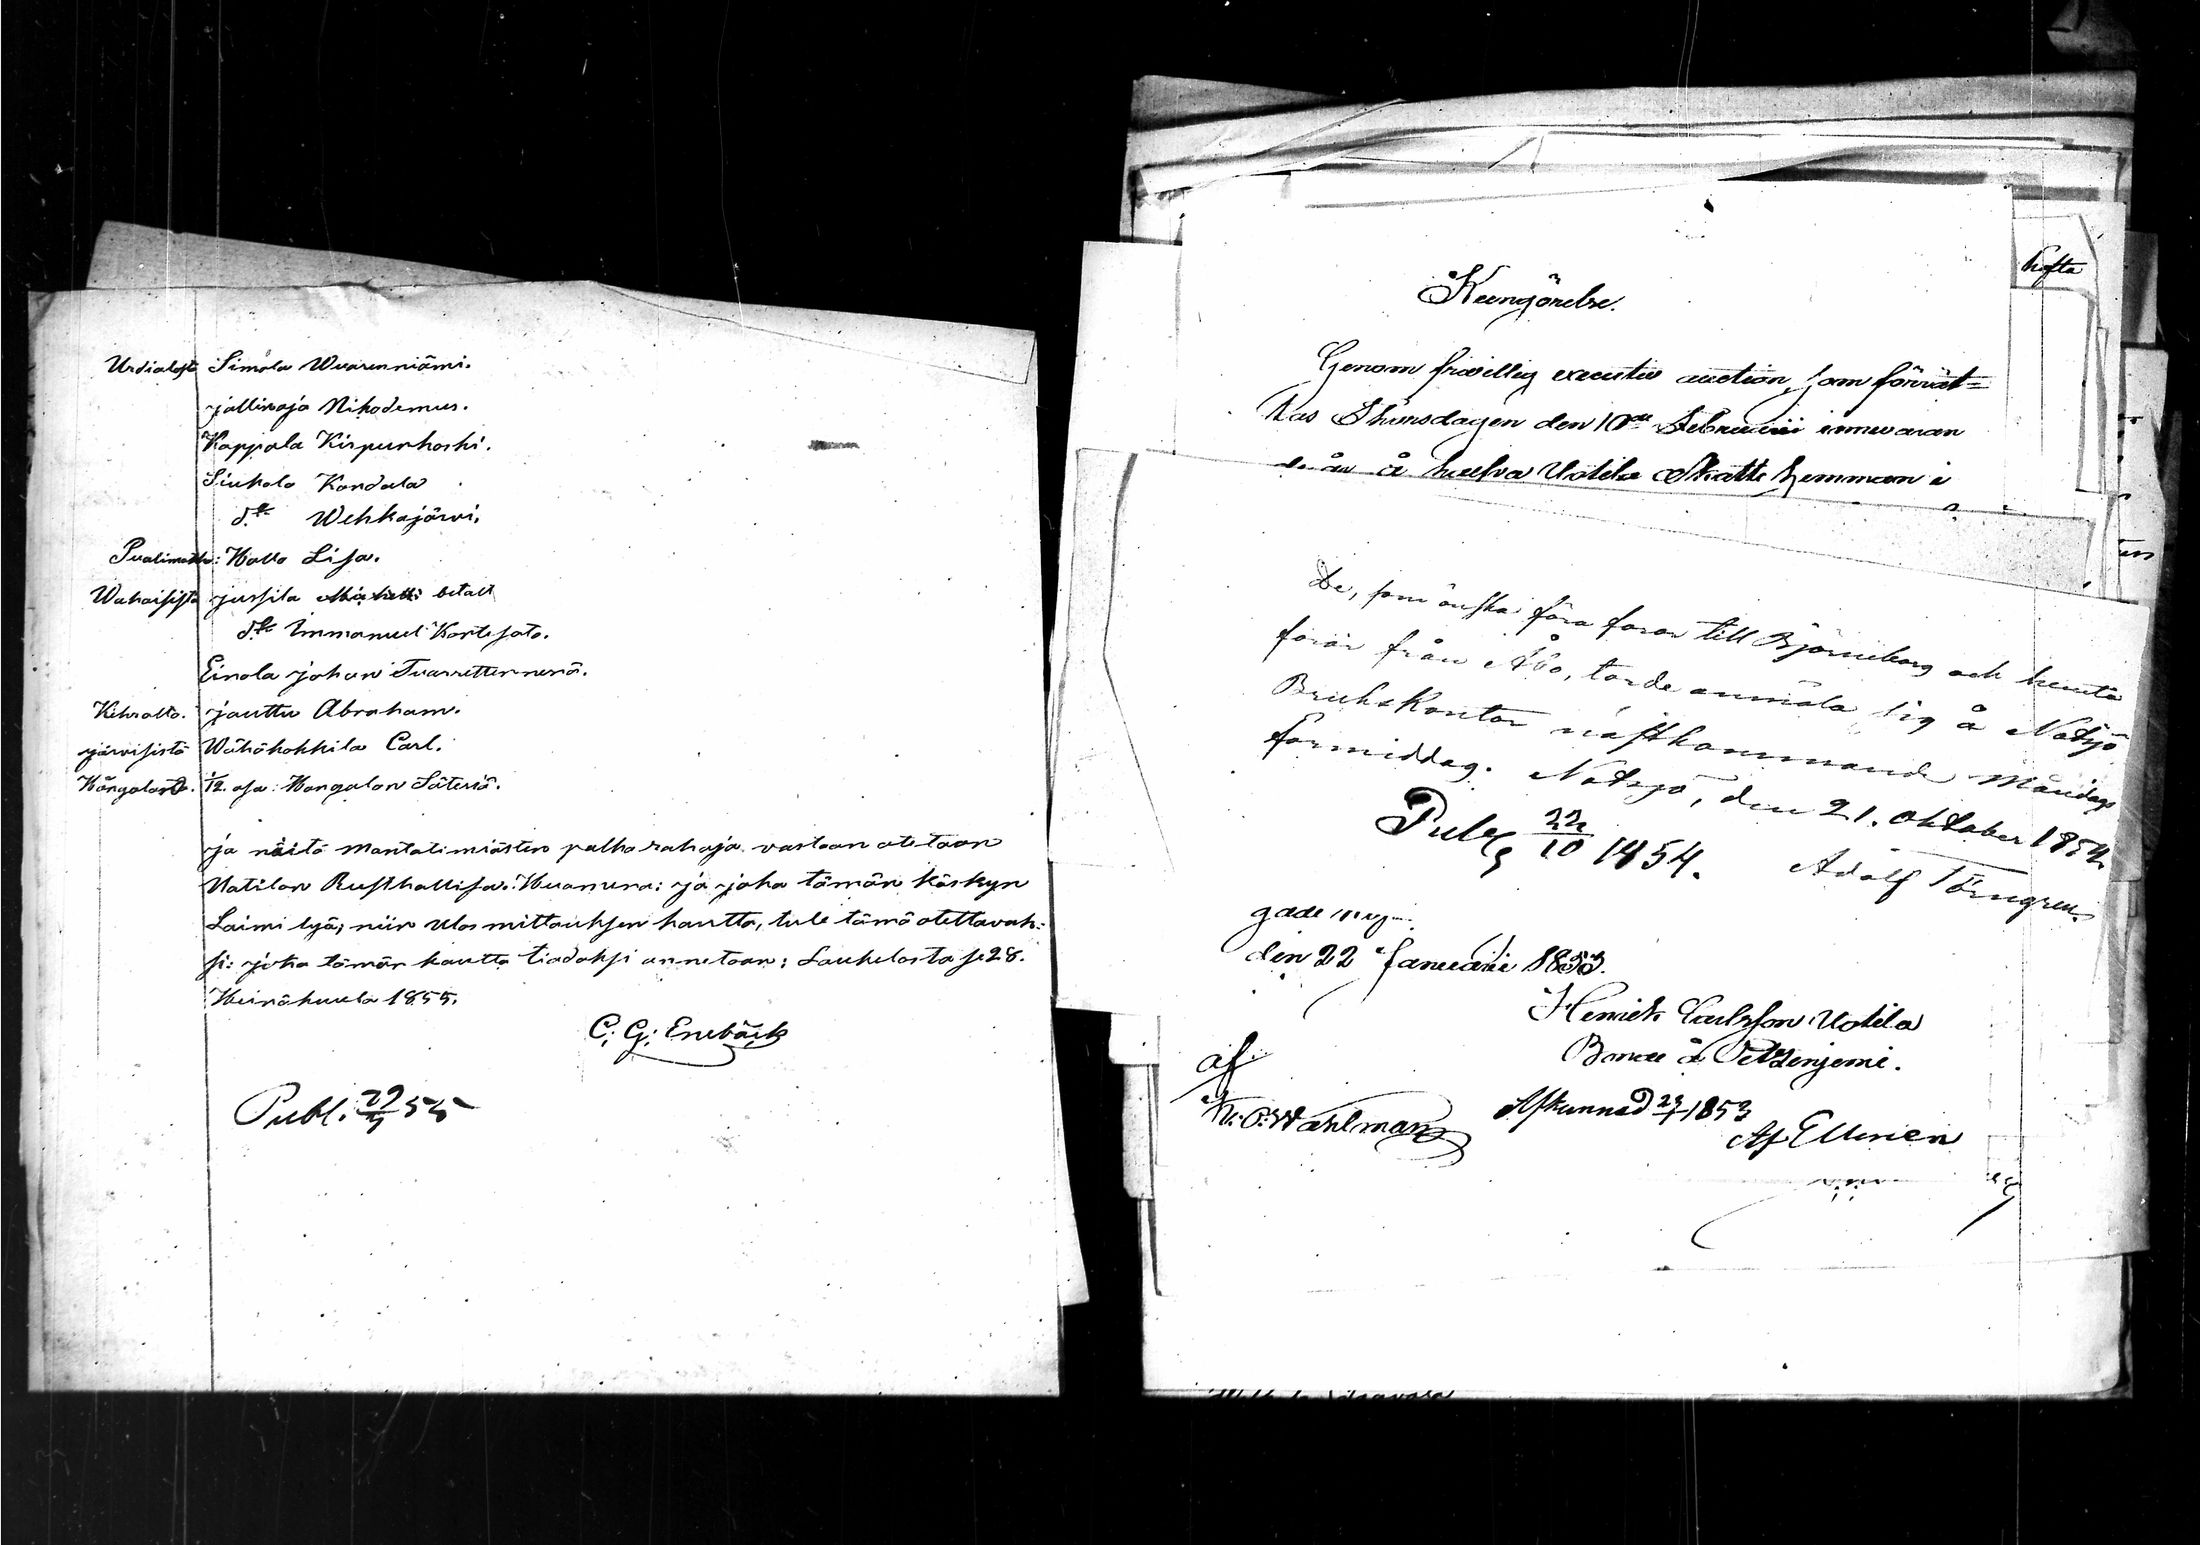 Urdialast Simola Wuorenniämi.
jallinoja Nikodemus.
Kappola Kirpunkoski.
Siukola Kondola
d:o Wehkajärvi.
Puolimatka: Hallo Lisa.
Wahaisista jussila betalt
d:o Immanuel Kortesato.
Einola johan
jauttu Abraham.
järvisistä Wähäkokkila Carl.
1/12. osa: Hongolan Säteriä.
ja näitä Mantali miästen palka rahaja vastaan otetaan
Uotilan Rusthallisa: Huomena: ja joka tämän käskyn
Laimi lyä, niin Ulos mittauksen kautta, tule tämä otettavak:
si: joka tämän kautta tiadoksi annetaan: Laukelasta se 28.
Heinäkuula 1855.
C: G: Enebäck
Publ. 29/7 55
hofta
Kungörelse.
Genom friwillig executiv auction, som förrät=
tas Thorsdagen den 10de Februarii innevaran
de år å halfva Uotila Skatte hemman i
De, som önska föra foror till Björneborg och hemta
foror från Åbo, torde anmäla sig å Notsjö
Brukskontor nästkommande Måndags
förmiddag. Notsjö, den 21. Oktober 1854.
Adolf Törngren.
Publ 22/10 1854.
den 22 Januarii 1853.
Henrik Carlsson Uotila
Bonde å
af
Wahlman
Afkunnad 23/1 1853
Af